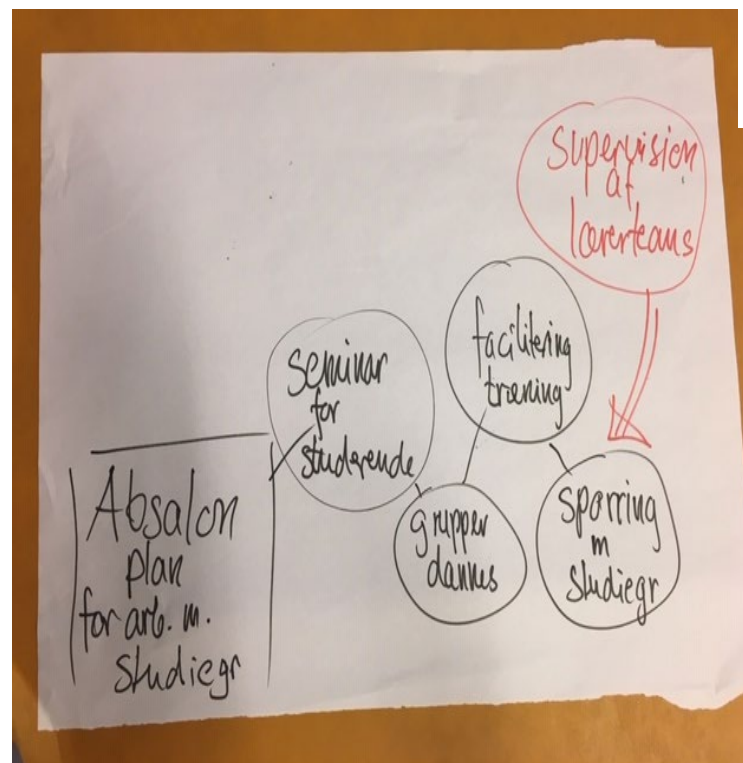 Supervision
af
lærerteams
facilitering
træning
seminar
for
studerende
Absalon
plan
for arb. m.
studiegr
grupper
dannes
sparring
m
studiegr